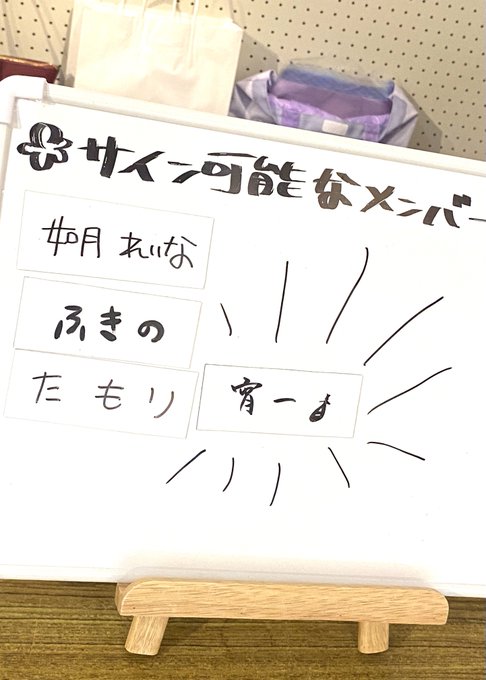 サイン可能なメンバー
如月 れいな
ふきの
たもり
宵一